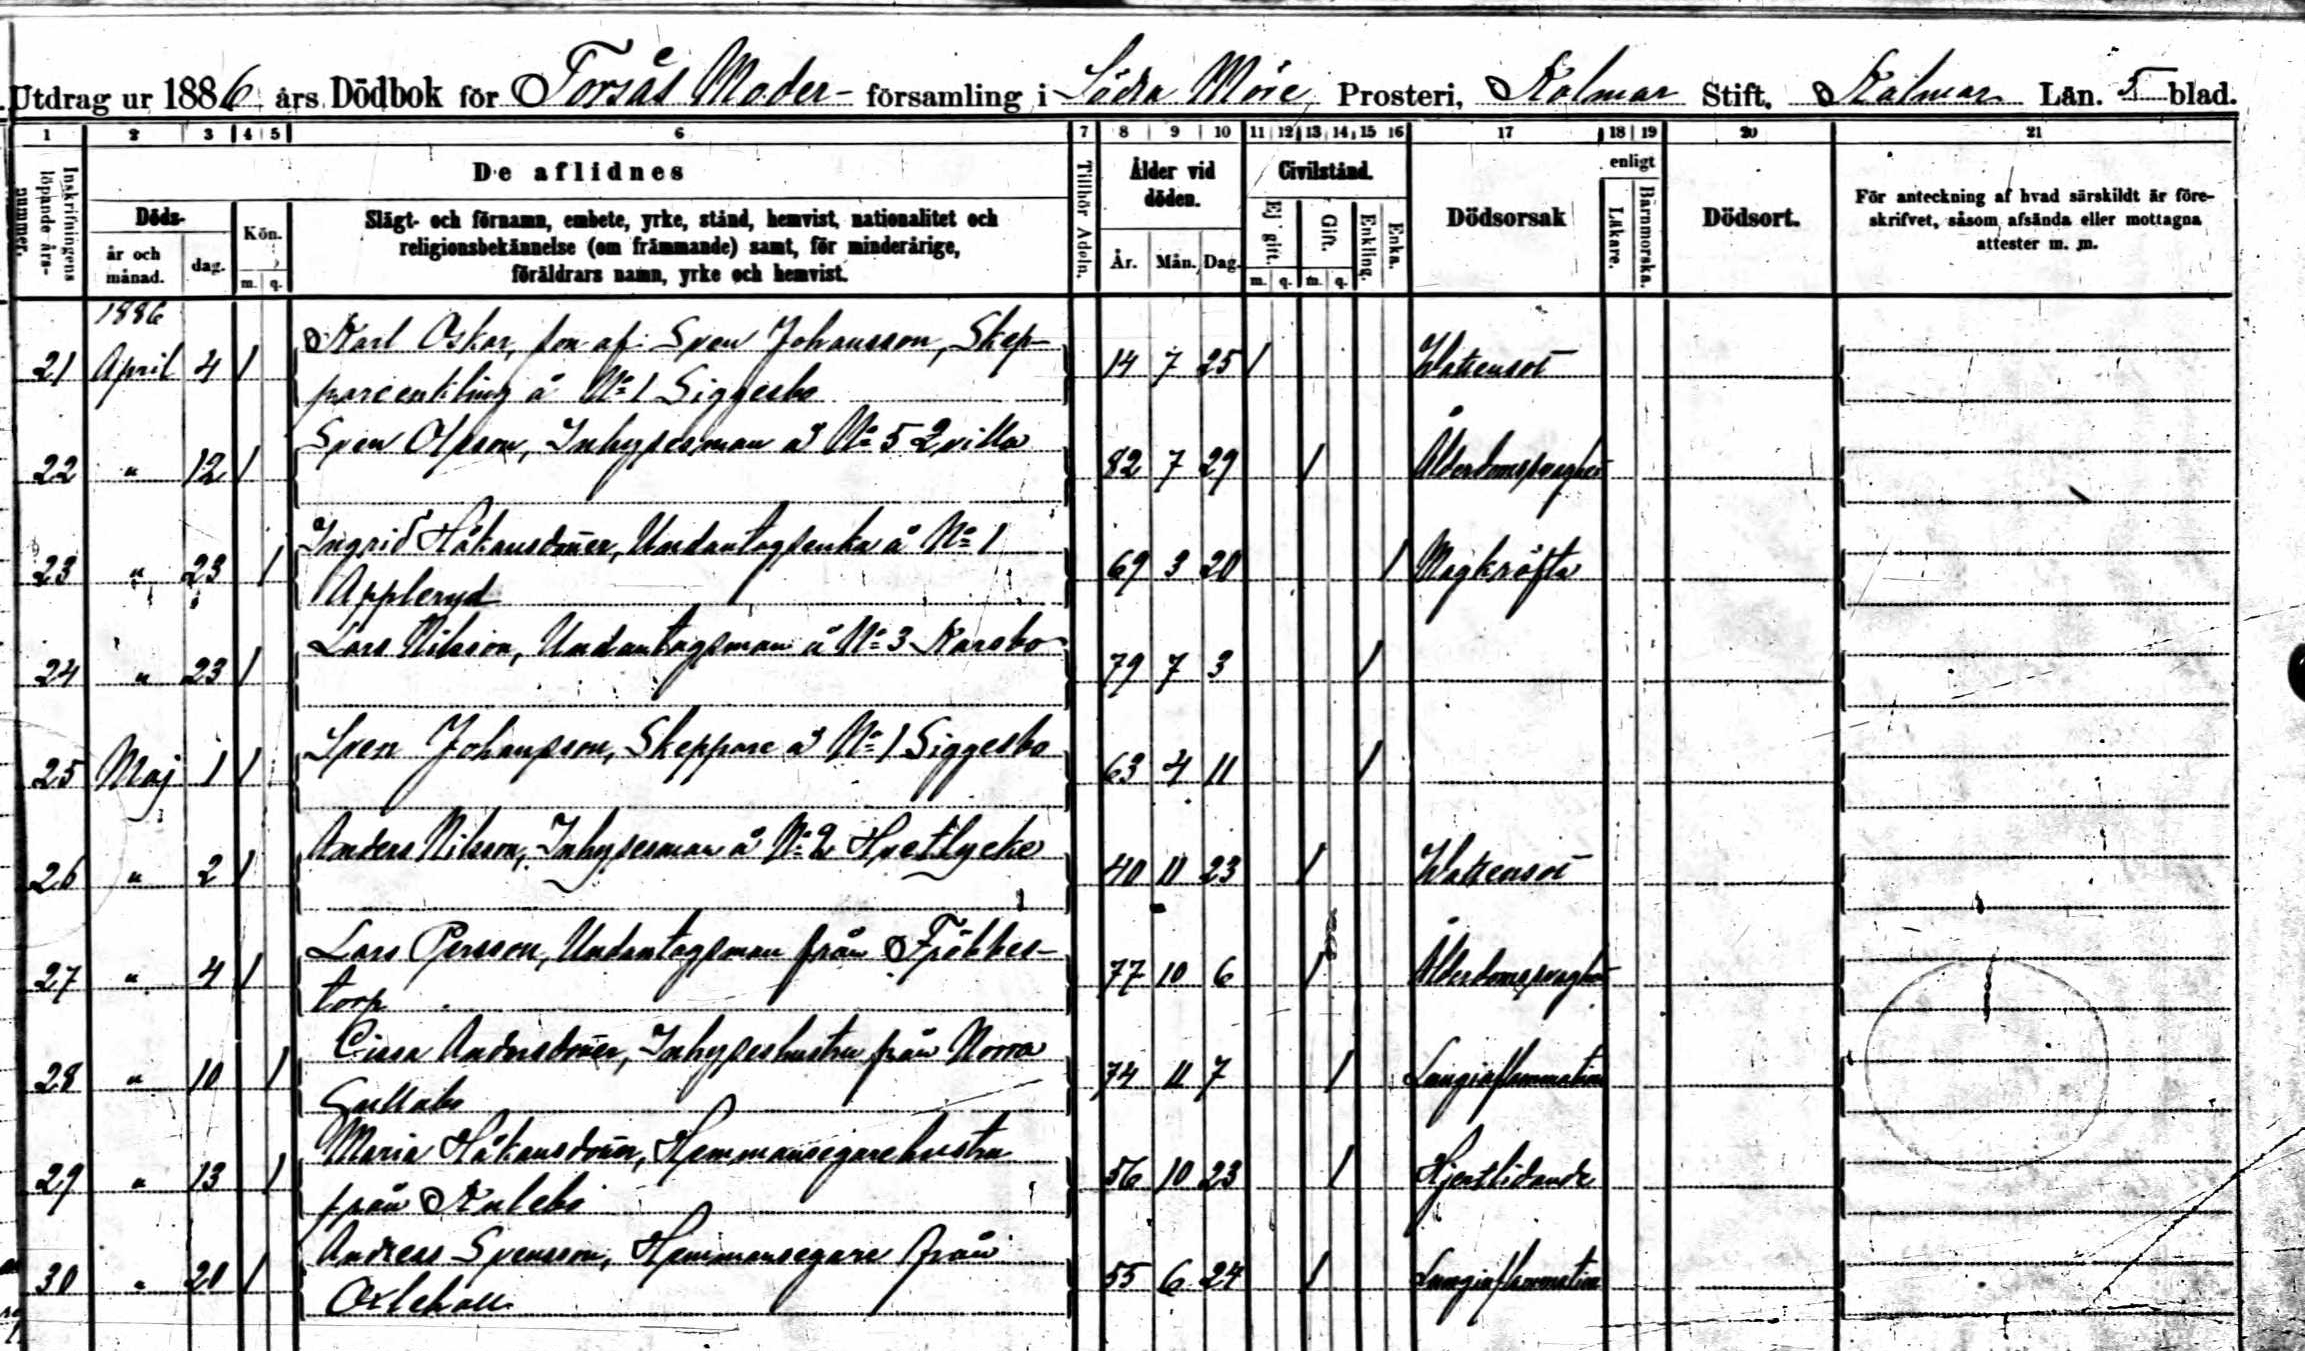 Utdrag ur 1886 års Dödbok för Torsås Moder- församling i Södra Möre Prosteri, Kalmar Stift, Kalmar Län. 5 blad.
1 2 3 4 5 6 7 8 9 10 11 12 13 14 15 16 17 18 19 20 21
Inskrifningens löpande års-nummer.
De aflidnes
Döds-
år och månad.
dag.
Kön.
m. q.
Slägt- och förnamn, embete, yrke, stånd, hemvist, nationalitet och
religionsbekännelse (om främmande) samt, för minderårige,
föräldrars namn, yrke och hemvist.
Tillhör Adeln.
Ålder vid döden.
År. Mån. Dag.
Civilstånd.
Ej gift. Gift. Enkling. Enka.
m. q. m. q.
Dödsorsak
enligt
Läkare. Barnmorska.
Dödsort.
För anteckning af hvad särskildt är före-
skrifvet, såsom afsända eller mottagna
attester m. m.
1886
Karl Oskar, son af Sven Johansson, Skep-
21 April 4 1 14 7 25 1 Wattensot
pareenkling å No 1 Siggesbo
Sven Olsson, Inhysesman å No 5 Qvilla
22 " 12 1 82 7 29 1 Ålderdomssvaghet
Ingrid Håkansdotter, Undantagsenka å No 1
23 " 23 1 69 3 20 1 Magkräfta
Appleryd
Lars Nilsson, Undantagsman å No 3 Karsbo
24 " 23 1 79 7 3 1
Sven Johansson, Skeppare å No 1 Siggesbo
25 Maj 1 1 63 4 11 1
Anders Nilsson, Inhysesman å No 2 Hvetlycke
26 " 2 1 40 11 23 1 Wattensot
Lars Persson, Undantagsman från Fröbbes-
27 " 4 1 77 10 6 1 Ålderdomssvaghet
torp
Cissa Andersdotter, Inhyseshustru från Norra
28 " 10 1 74 11 7 1 Lunginflammation
Gullabo
Maria Håkansdotter, Hemmansegarehustru
29 " 13 1 56 10 23 1 Hjertlidande
från Kulebo
Andreas Svensson, Hemmansegare från
30 " 20 1 55 6 24 1 Lunginflammation
Oxlehall